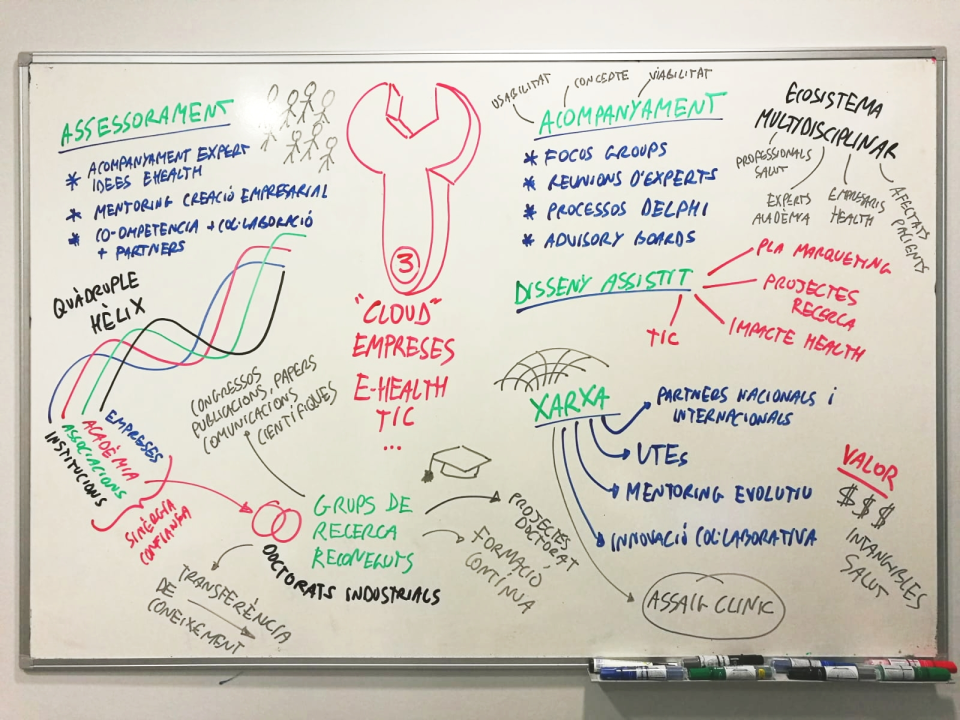 ASSESSORAMENT
* ACOMPANYAMENT EXPERT
IDEES EHEALTH
* MENTORING CREACIÓ EMPRESARIAL
* CO-OMPETENCIA + COL·LABORACIÓ
+ PARTNERS
QUÀDRUPLE
HÈLIX
EMPRESES
ACADÈMIA
ASSOCIACIONS
INSTITUCIONS
SINÈRGIA
CONFIANÇA
3
"CLOUD"
EMPRESES
E-HEALTH
TIC
...
CONGRESSOS
PUBLICACIONS, PAPERS
COMUNICACIONS
CIENTÍFIQUES
GRUPS DE
RECERCA
RECONEGUTS
DOCTORATS INDUSTRIALS
TRANSFERÈNCIA
DE
CONEIXEMENT
PROJECTES
DOCTORAT
FORMACIÓ
CONTÍNUA
USABILITAT
CONCEPTE
VIABILITAT
ACOMPANYAMENT
* FOCUS GROUPS
* REUNIONS D'EXPERTS
* PROCESSOS DELPHI
* ADVISORY BOARDS
ECOSISTEMA
MULTIDISCIPLINAR
PROFESSIONALS
SALUT
EXPERTS
ACADÈMIA
EMPRESARIS
HEALTH
AFECTATS
PACIENTS
DISSENY ASSISTIT
PLA MARQUETING
PROJECTES
RECERCA
IMPACTE HEALTH
TIC
XARXA
PARTNERS NACIONALS i
INTERNACIONALS
UTEs
MENTORING EVOLUTIU
INNOVACIÓ COL·LABORATIVA
ASSAIG CLINIC
VALOR
$ $ $
INTANGIBLES
SALUT